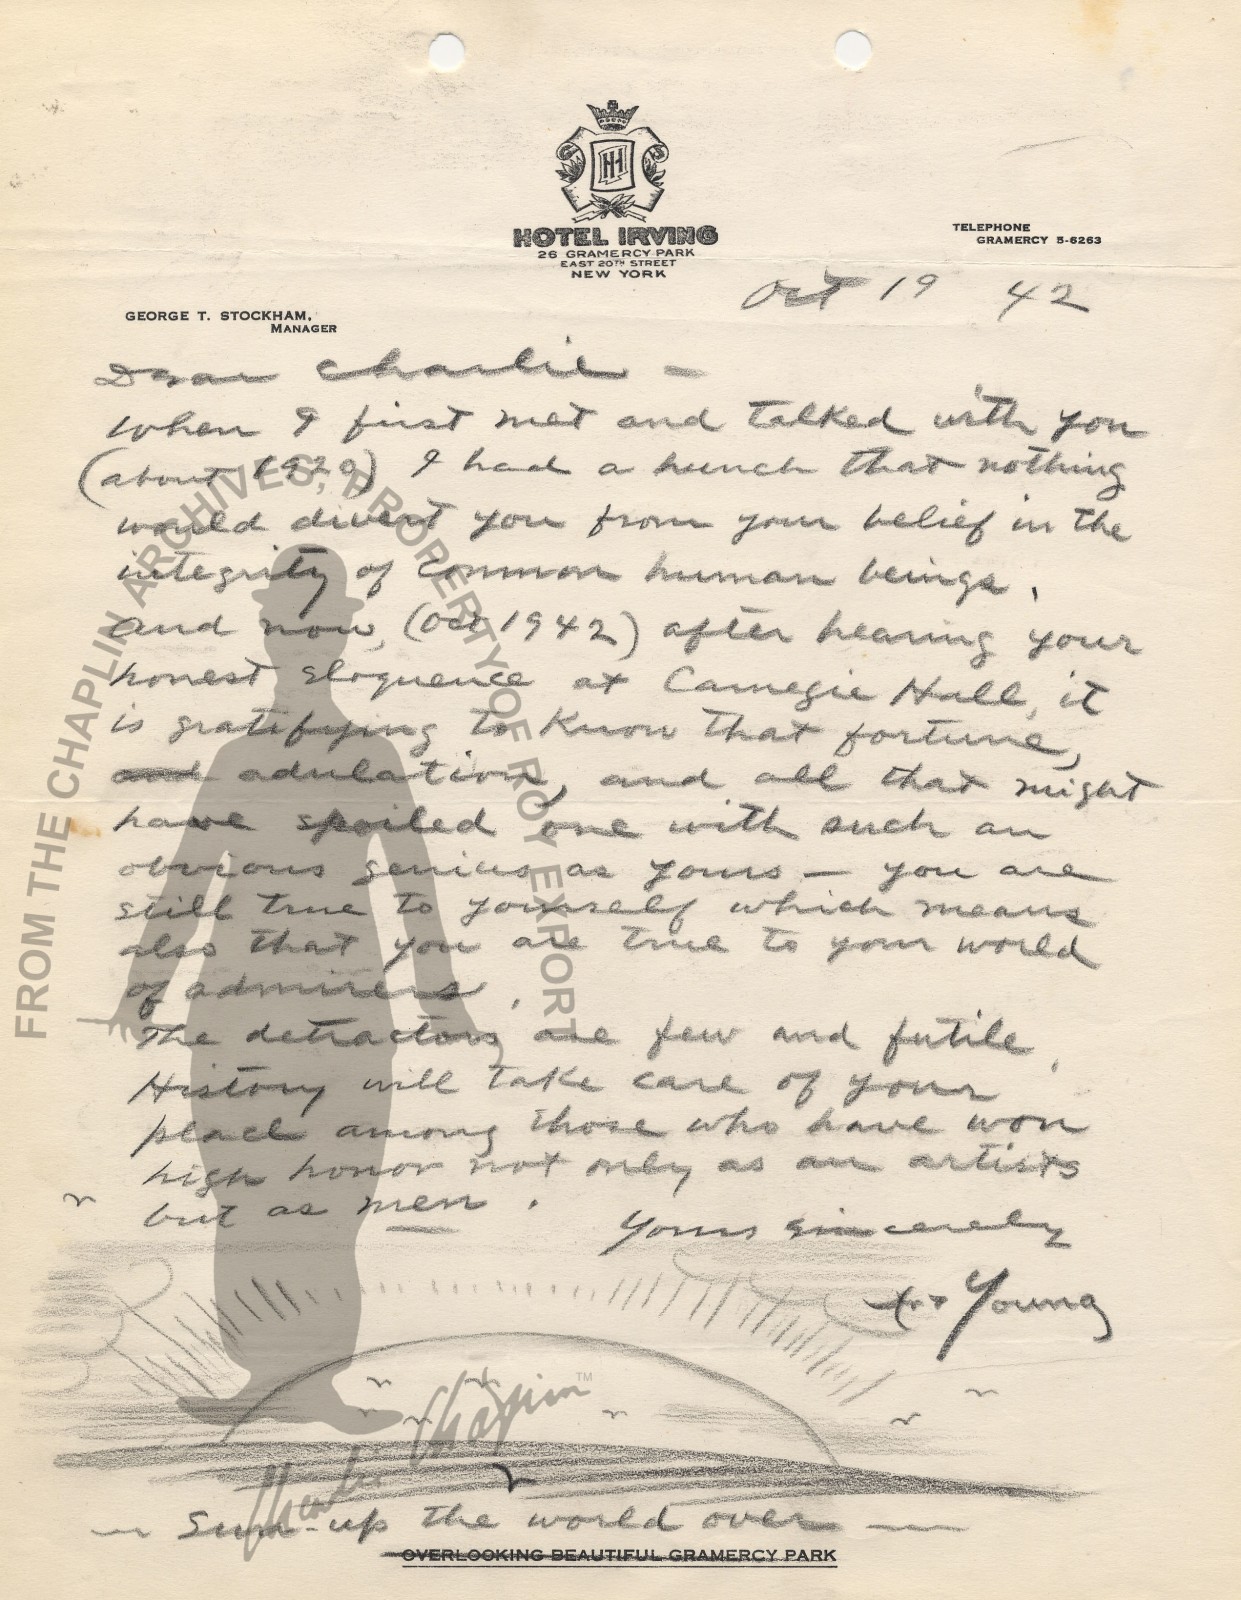 HOTEL IRVING
26 GRAMERCY PARK
EAST 20TH STREET
NEW YORK
TELEPHONE
GRAMERCY 5-6263
GEORGE T. STOCKHAM,
MANAGER
Oct 19 42
Dear Charlie —
When I first met and talked with you
(about 1920) I had a hunch that nothing
would divert you from your belief in the
integrity of common human beings.
And now, (Oct 1942) after hearing your
honest eloquence at Carnegie Hall, it
is gratifying to know that fortune,
and adulation, and all that might
have spoiled one with such an
obvious genius as yours — you are
still true to yourself which means
also that you are true to your world
of admirers.
The detractors are few and futile.
History will take care of your
place among those who have won
high honor not only as an artists
but as men.
Yours sincerely
Art Young
— Sun-up the world over —
OVERLOOKING BEAUTIFUL GRAMERCY PARK
FROM THE CHAPLIN ARCHIVES, PROPERTY OF ROY EXPORT
Charles Chaplin TM